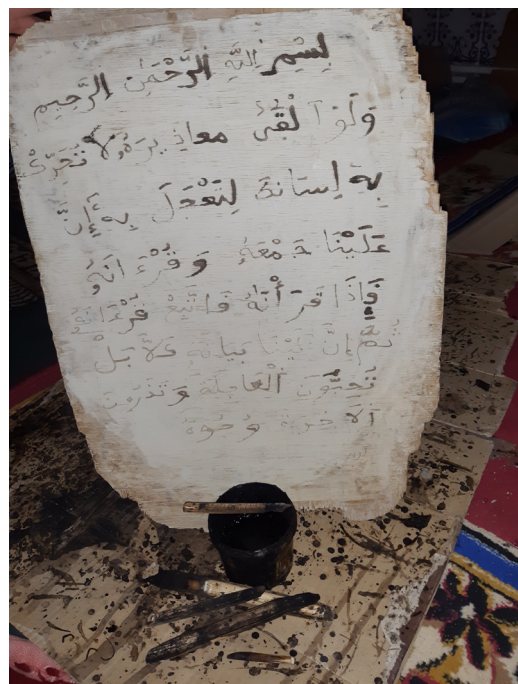 بِسْمِ اللَّهِ الرَّحْمَٰنِ الرَّحِيمِ
وَلَوْ آ لْقَىٰ معاذِيرَهُ لا تُحَرِّكْ
بِهِ لِسانَكَ لِتَعْجَلَ بِهِ إِنَّ
عَلَيْنَا جَمْعَهُ وَقُرْءَ انَهُ
فَإِذَا قَرَأْنَٰهُ فَاتَّبِعْ قُرْءَانَهُ
ثُمَّ إِنَّ عَلَيْنَا بَيَانَهُ كَلاَّ بَلْ
تُحِبُّونَ الْعَاجِلَةَ وَتَذَرُونَ
آلَا خِرَةَ وُجُوهٌ